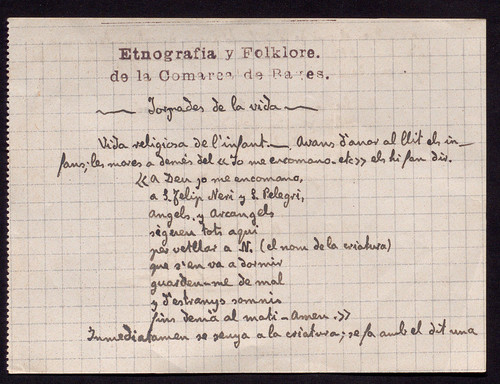 Etnografia y Folklore.
de la Comarca de Bages.
Jornades de la vida
Vida religiosa de l'infant. Avans d'anar al llit els in-
fans; les mares a demés del «Jo me encomano-etc» els hi fan dir.
«A Deu jo me encomano,
a S. Felip Neri y S. Pelegrí,
Angels y Arcangels
siguen tots aqui
per vetllar a N. (el nom de la criatura)
que s'en va a dormir
guarden-me de mal
y d'estranys somnis
fins demà al mati-Amen.»
Inmediatamen se senya a la criatura; se fa amb el dit una